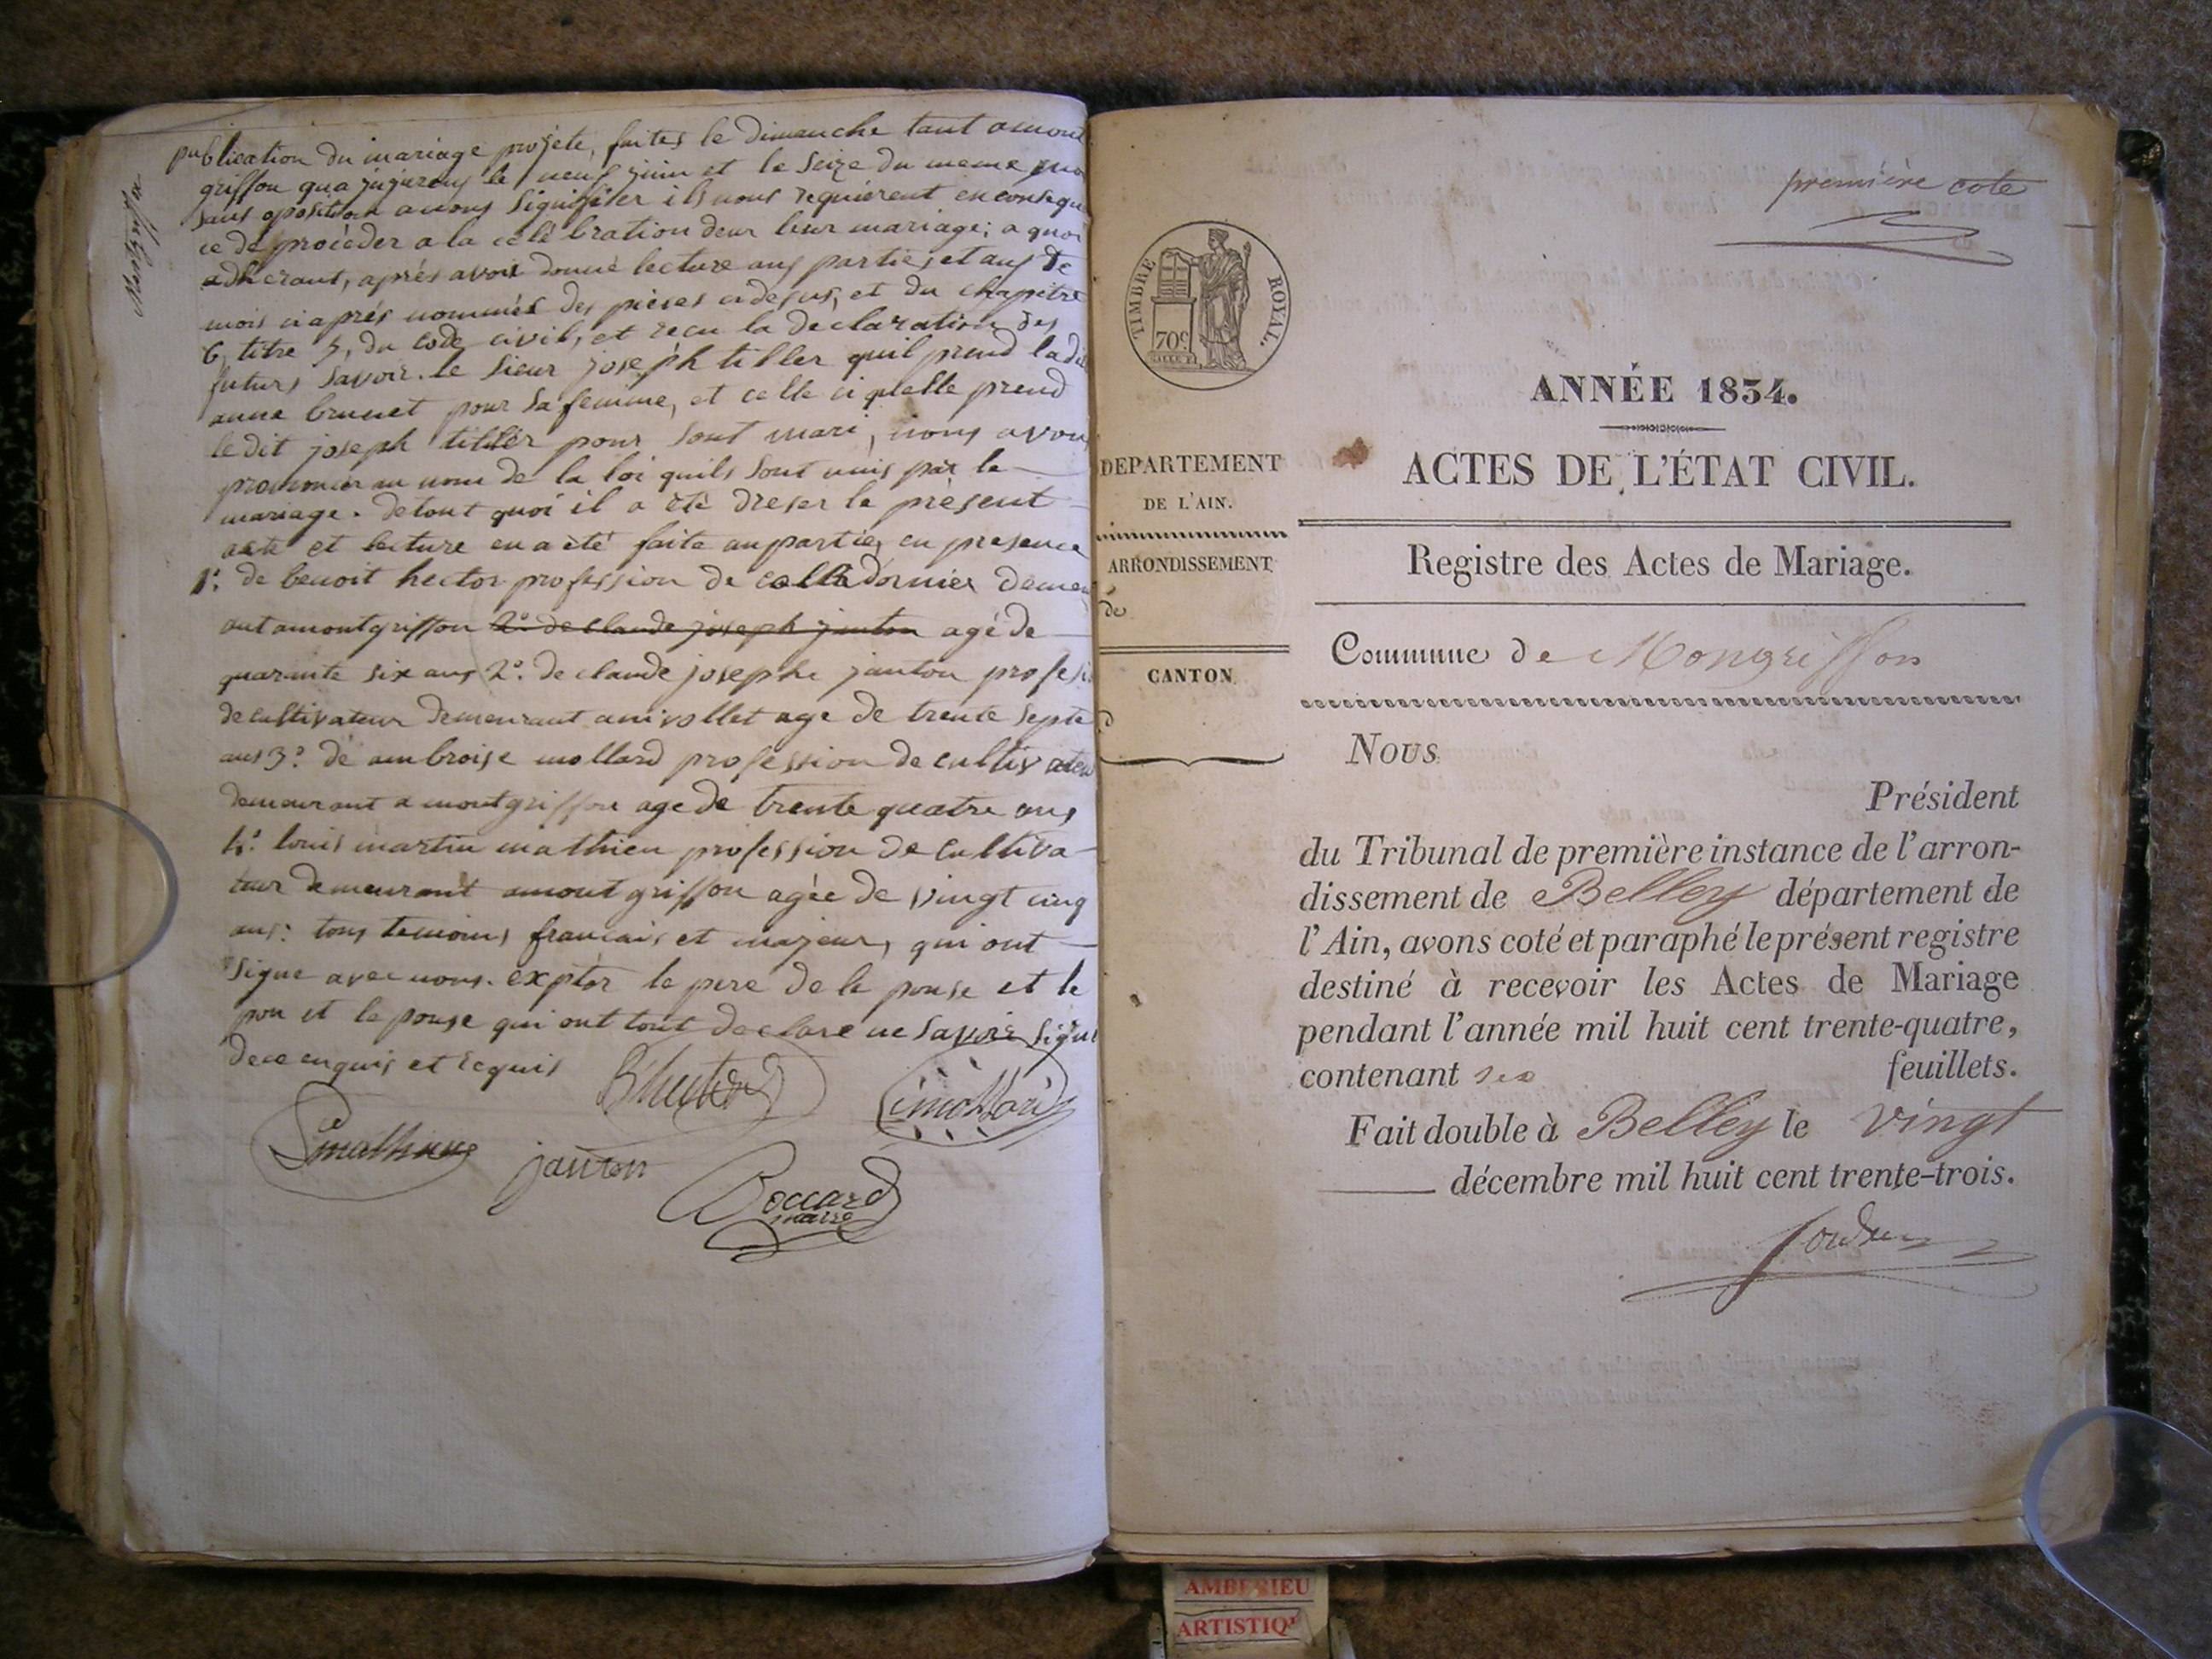 Montgriffon
publication du mariage projeté, faites le dimanche tant amont
griffon qua jujurieuy le neuf juin et le seize du meme
sans oposition avons signifiter ils nous requiérent en conseque
ce de procéder a la célébration deur leur mariage; a quoi
adhérant, aprés avoir donné lecture auy parties, et auy te
mois ciaprés nommés des pièces cidesus, et du chapitre
6, titre 5, du code civil, et recu la déclaration des
futurs savoir. le sieur joseph tiller quil prend ladi
anne brunet pour sa femme, et celle ci qu'elle prend
ledit joseph tiller pour sont mari, nous avons
prononcer au nom de la loi quils sont unis par le
mariage. detout quoi il a été dreser le présent
acte et lecture en a été faite au partie, en presence
1º. de benoit hector profession de dornier demeu
ant amontgriffon 2º. de claude joseph janton agé de
quarante six ans 2º. de claude josephe janton profesi
de cultivateur demeurant anivollet age de trente septe
ans 3º. de ambroise mollard profession de cultivateu
demeurant a montgriffon age de trente quatre ans
4º. louis martin mathieu profession de cultiva
teur demeurant amontgriffon agée de vingt cinq
ans: tous temoins francais et majeur, qui ont
signe avec nous. expter le pere de le pouse et le
pou et le pouse qui ont tout declare ne savoir signe
dece enquis et requis
Bhector
mollard
Lmathieu
janton
Boccard
maire
première cote
TIMBRE ROYAL.
70c
DEPARTEMENT
DE L'AIN.
ARRONDISSEMENT
de
CANTON
d
ANNÉE 1834.
ACTES DE L'ÉTAT CIVIL.
Registre des Actes de Mariage.
Commune de Mongriffon
Nous
Président
du Tribunal de première instance de l'arron-
dissement de Belley département de
l'Ain, avons coté et paraphé le présent registre
destiné à recevoir les Actes de Mariage
pendant l'année mil huit cent trente-quatre,
contenant six feuillets.
Fait double à Belley le vingt
décembre mil huit cent trente-trois.
AMBERIEU
ARTISTIQ